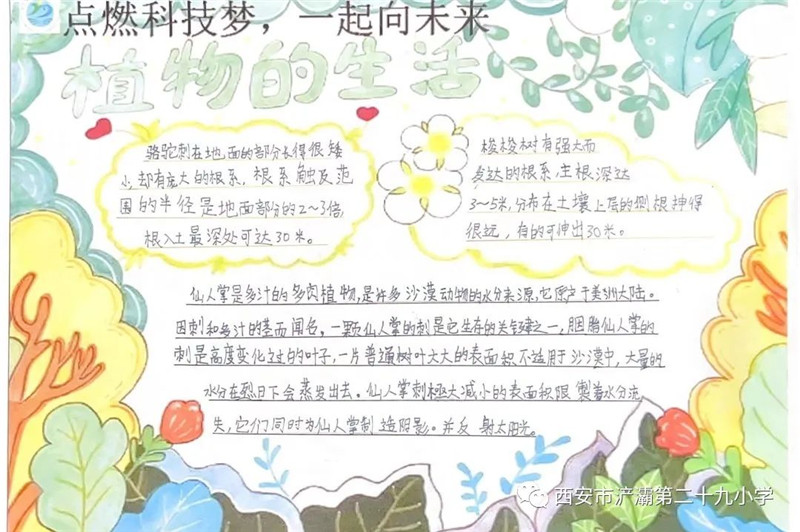 点燃科技梦，一起向未来
植物的生活
骆驼刺在地面的部分长得很矮
小,却有庞大的根系，根系触及范
围的半径是地面部分的2~3倍,
根入土最深处可达30米。
梭梭树有强大而
发达的根系,主根深达
3~5米,分布在土壤上层的侧根伸得
很远，有的可伸出30米。
仙人掌是多汁的多肉植物,是许多沙漠动物的水分来源,它原产于美洲大陆。
因刺和多汁的茎而闻名。一颗仙人掌的刺是它生存的关键之一,胭脂仙人掌的
刺是高度变化过的叶子,一片普通树叶大大的表面积不适用于沙漠中,大量的
水分在烈日下会蒸发出去。仙人掌刺極大减小的表面积限製着水分流
失,它们同时为仙人掌制造阴影。并反射太阳光。
西安市浐灞第二十九小学